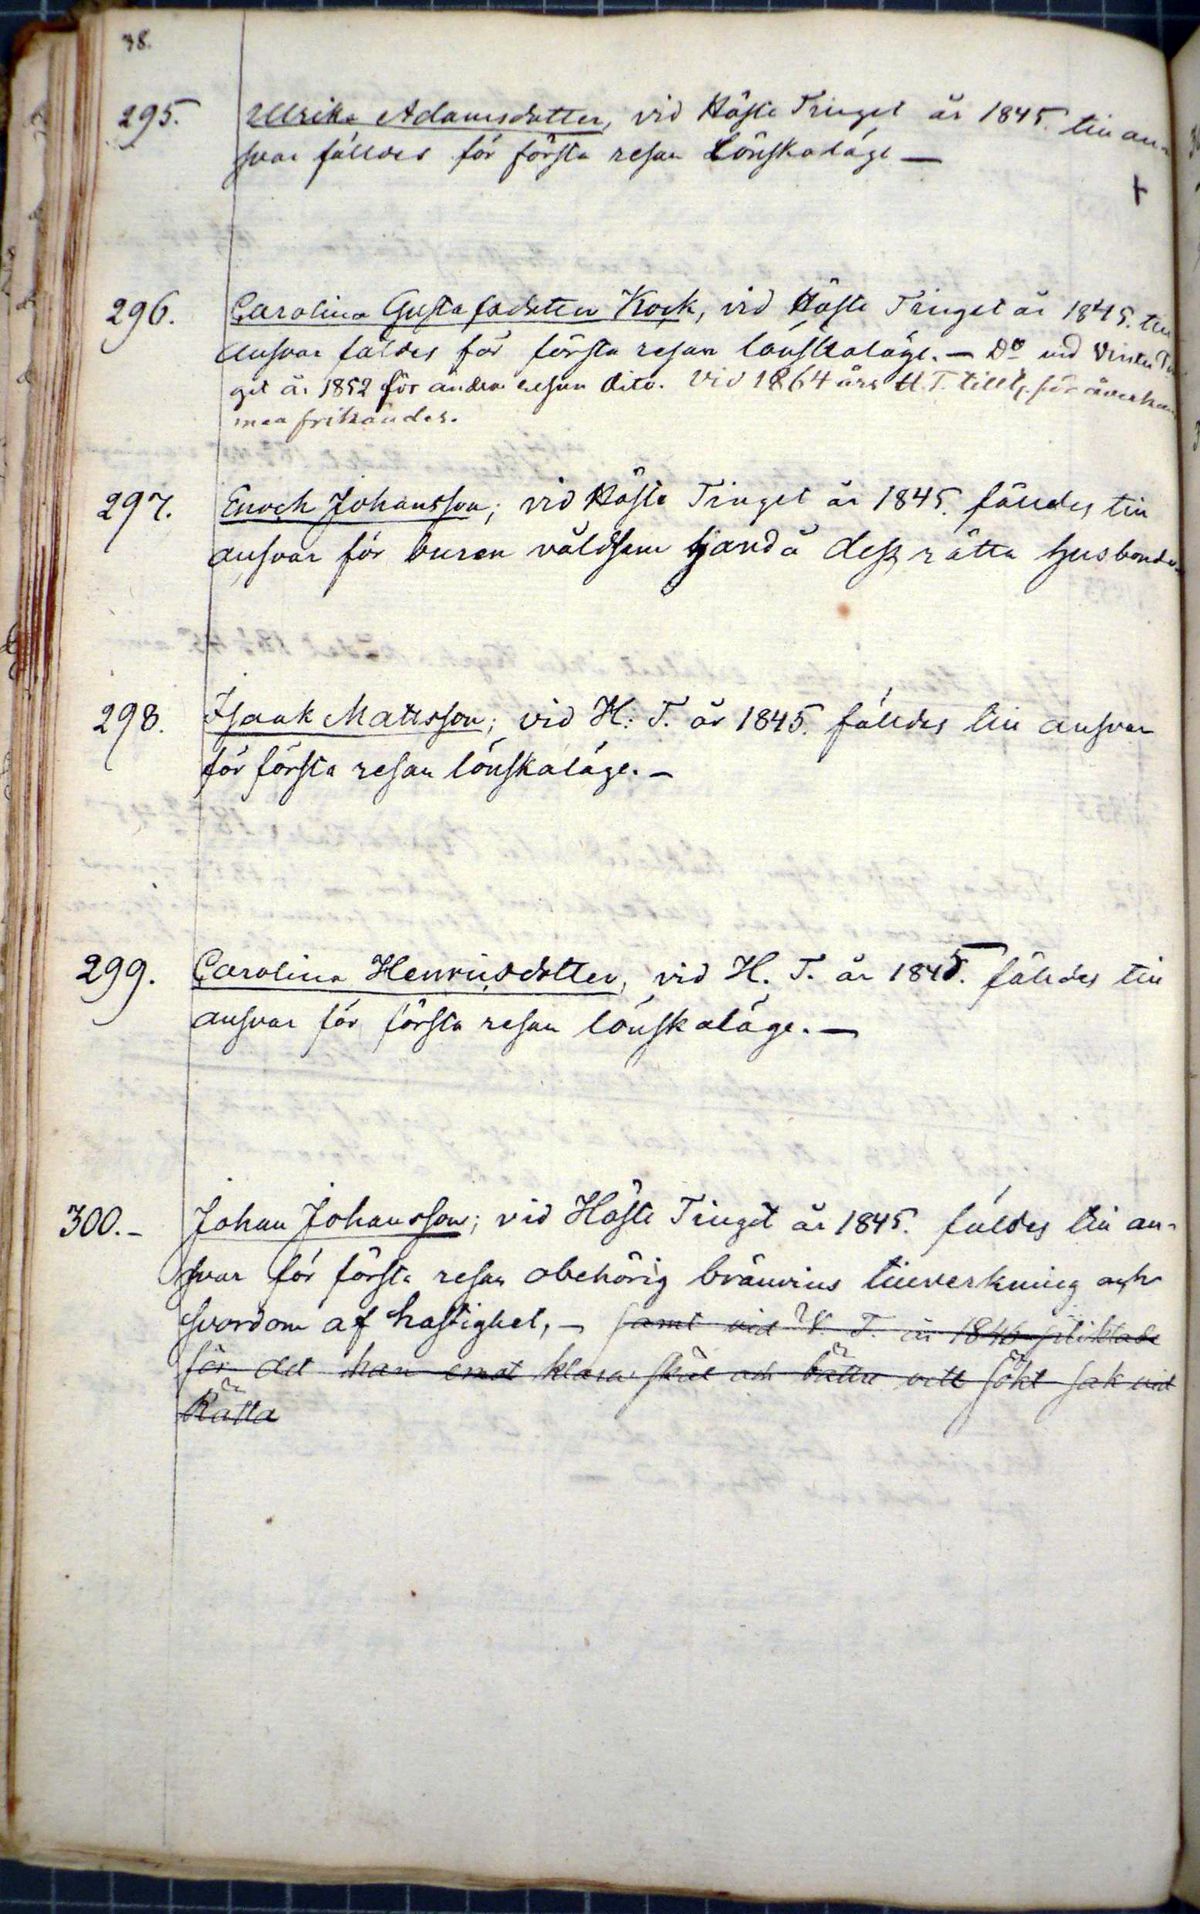 38.
295. Ulrika Adamsdotter, vid Höste Tinget år 1845. till an-
svar fälldes för första resan Lönskaläge —
+
296. Carolina Gustafsdotter Kock, vid Höste Tinget år 1845. till
ansvar fäldes för första resan lönskaläge. — Do vid Vinter Tin
get år 1852 för andra resan dito. Vid 1864 års H. T. tillt, för åverkan
men frikändes.
297. Enoch Johansson; vid Höste Tinget år 1845. fälldes till
ansvar för buren våldsam hand å dess rätta husbonde
298. Isaak Mattsson; vid H. T. år 1845. fälldes till ansvar
för första resan lönskaläge. —
299. Carolina Henricsdotter, vid H. T. år 1845. fälldes till
ansvar för första resan lönskaläge. —
300. – Johan Johansson; vid Höste Tinget år 1845. fäldes till an-
svar för första resan obehörig bränvins tillverkning och
svordom af hastighet, — samt vid V. T. år 1846 pliktade
för det han emot klara skäl och bättre vett sökt sak vid
Rätta